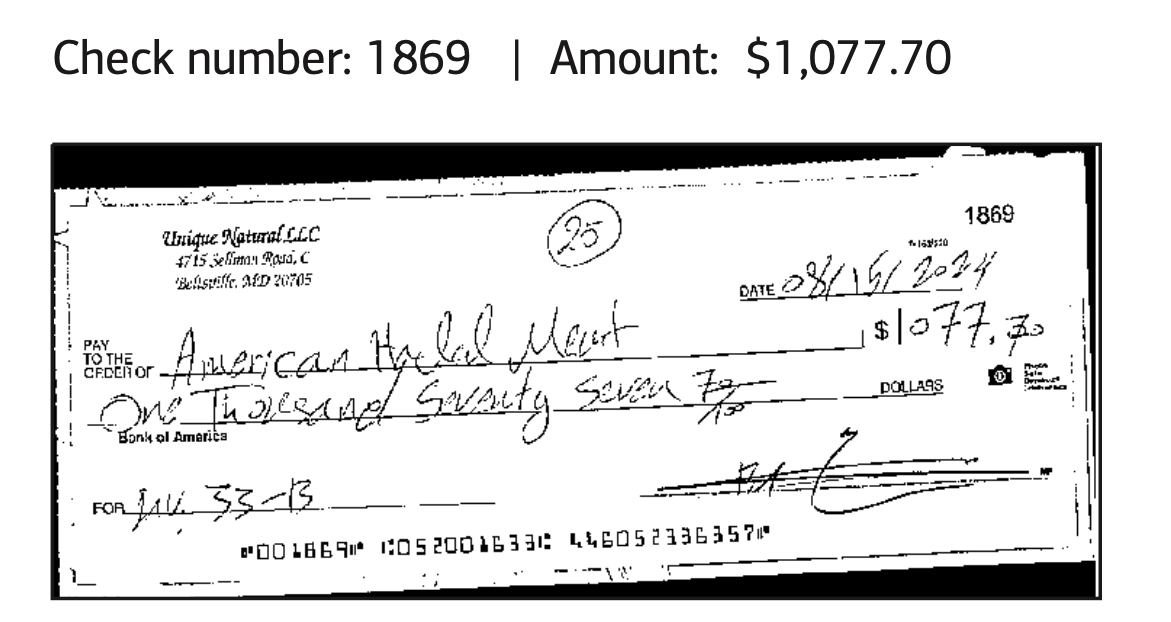 Check number: 1869 | Amount: $1,077.70
1869
Unique Natural LLC
4715 Sellman Road, C
Beltsville, MD 20705
25
DATE 08/15/2024
PAY TO THE ORDER OF American Halal Meat
$ 1077.70
One Thousand Seventy Seven 70/100 DOLLARS
Bank of America
FOR INV. 33-B
MP
⑈001869⑈ ⑆052001633⑆ 446052336357⑈